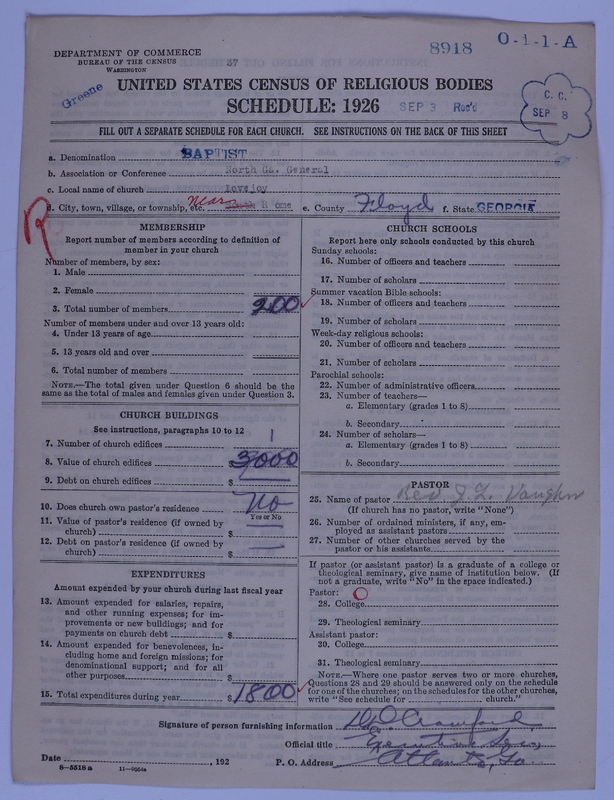 8918 O-1-1-A
DEPARTMENT OF COMMERCE
BUREAU OF THE CENSUS
WASHINGTON
37
Greene
UNITED STATES CENSUS OF RELIGIOUS BODIES
SCHEDULE: 1926
SEP 3 Rec'd
C. C.
SEP 8
FILL OUT A SEPARATE SCHEDULE FOR EACH CHURCH. SEE INSTRUCTIONS ON THE BACK OF THIS SHEET
a. Denomination BAPTIST
b. Association or Conference North Ga. General
c. Local name of church Lovejoy
d. City, town, village, or township, etc. near Rome e. County Floyd f. State GEORGIA
R
MEMBERSHIP
Report number of members according to definition of
member in your church
Number of members, by sex:
1. Male
2. Female
3. Total number of members 200
Number of members under and over 13 years old:
4. Under 13 years of age
5. 13 years old and over
6. Total number of members
NOTE.—The total given under Question 6 should be the
same as the total of males and females given under Question 3.
CHURCH BUILDINGS
See instructions, paragraphs 10 to 12
7. Number of church edifices 1
8. Value of church edifices 3000
9. Debt on church edifices $
10. Does church own pastor's residence No
Yes or No
11. Value of pastor's residence (if owned by
church) $ —
12. Debt on pastor's residence (if owned by
church) $ —
EXPENDITURES
Amount expended by your church during last fiscal year
13. Amount expended for salaries, repairs,
and other running expenses; for im-
provements or new buildings; and for
payments on church debt $
14. Amount expended for benevolences, in-
cluding home and foreign missions; for
denominational support; and for all
other purposes $
15. Total expenditures during year $ 1800
CHURCH SCHOOLS
Report here only schools conducted by this church
Sunday schools:
16. Number of officers and teachers
17. Number of scholars
Summer vacation Bible schools:
18. Number of officers and teachers
19. Number of scholars
Week-day religious schools:
20. Number of officers and teachers
21. Number of scholars
Parochial schools:
22. Number of administrative officers
23. Number of teachers—
a. Elementary (grades 1 to 8)
b. Secondary
24. Number of scholars—
a. Elementary (grades 1 to 8)
b. Secondary
PASTOR
25. Name of pastor Rev J. L. Vaughn
(If church has no pastor, write "None")
26. Number of ordained ministers, if any, em-
ployed as assistant pastors
27. Number of other churches served by the
pastor or his assistants
If pastor (or assistant pastor) is a graduate of a college or
theological seminary, give name of institution below. (If
not a graduate, write "No" in the space indicated.)
Pastor: O
28. College
29. Theological seminary
Assistant pastor:
30. College
31. Theological seminary
NOTE.—Where one pastor serves two or more churches,
Questions 28 and 29 should be answered only on the schedule
for one of the churches; on the schedules for the other churches,
write "See schedule for church."
Signature of person furnishing information Crawford
Official title Executive Secy
Date , 192 P. O. Address Atlanta, Ga
8-5518 a